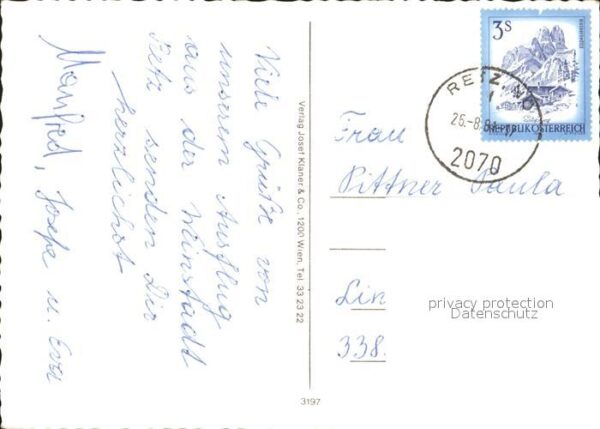 Viele Grüße von
unserem Ausflug
aus der Weinstadt
Retz senden Dir
herzlichst
Manfred, Josefa u. Eva
Verlag Josef Klaner & Co., 1200 Wien, Tel. 33 23 22
3197
3S
REPUBLIK ÖSTERREICH
RETZ, NÖ
26.-8.84-17
2070
Frau
Pittner Paula
338.
privacy protection
Datenschutz